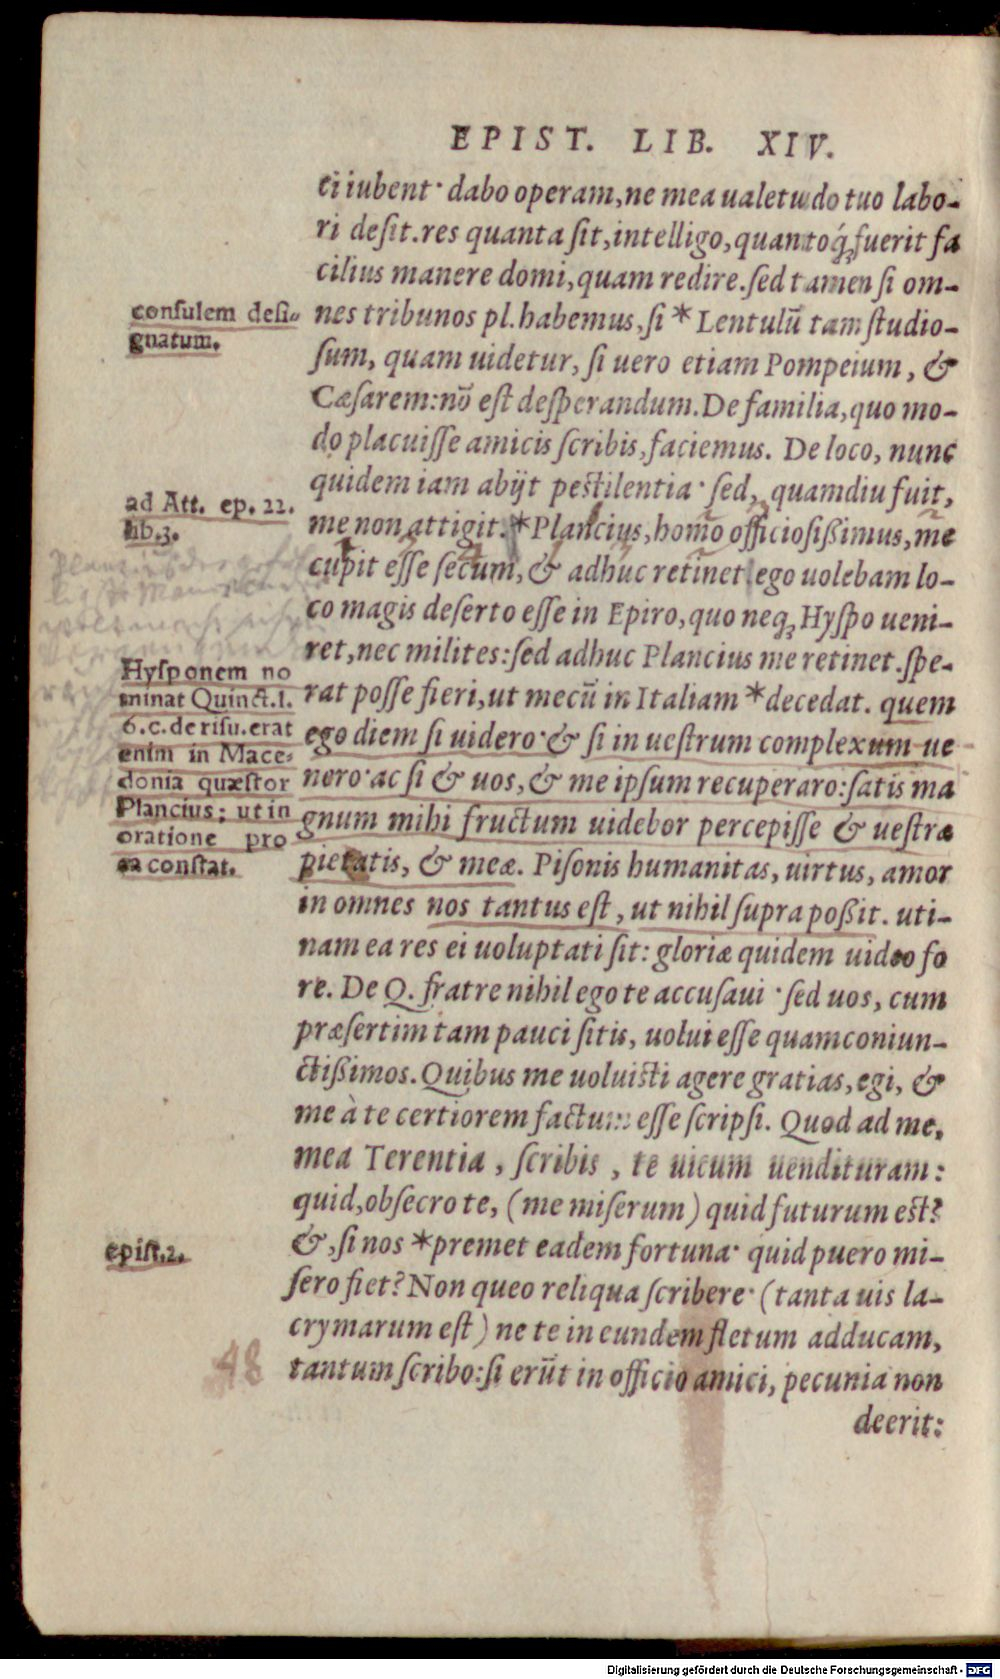 EPIST. LIB. XIV.
ti iubent· dabo operam, ne mea ualetudo tuo labo-
ri desit. res quanta sit, intelligo, quantoq́ꝫ fuerit fa
cilius manere domi, quam redire. sed tamen si om-
consulem desi-
gnatum.
nes tribunos pl. habemus, si * Lentulū tam studio-
sum, quam uidetur, si uero etiam Pompeium, &
Cæsarem: nō est desperandum. De familia, quo mo-
do placuisse amicis scribis, faciemus. De loco, nunc
quidem iam abijt pestilentia· sed, quamdiu fuit,
ad Att. ep. 22.
lib.3.
me non attigit. * Plancius, homo officiosißimus, me
cupit esse secum, & adhuc retinet. ego uolebam lo-
co magis deserto esse in Epiro, quo neqꝫ Hyspo ueni-
ret, nec milites: sed adhuc Plancius me retinet. spe-
Hysponem no
minat Quinct. l.
6. c. de risu. erat
enim in Mace-
donia quæstor
Plancius; ut in
oratione pro
ea constat.
rat posse fieri, ut mecū in Italiam * decedat. quem
ego diem si uidero· & si in uestrum complexum ue
nero· ac si & uos, & me ipsum recuperaro: satis ma
gnum mihi fructum uidebor percepisse & uestræ
pietatis, & meæ. Pisonis humanitas, uirtus, amor
in omnes nos tantus est, ut nihil supra poßit. uti-
nam ea res ei uoluptati sit: gloriæ quidem uideo fo
re. De Q. fratre nihil ego te accusaui· sed uos, cum
præsertim tam pauci sitis, uolui esse quamconiun-
ctißimos. Quibus me uoluisti agere gratias, egi, &
me à te certiorem factum esse scripsi. Quod ad me,
mea Terentia, scribis, te uicum uendituram:
quid, obsecro te, (me miserum) quid futurum est?
epist.2.
&, si nos * premet eadem fortuna· quid puero mi-
sero fiet? Non queo reliqua scribere· (tanta uis la-
crymarum est) ne te in eundem fletum adducam,
48
tantum scribo: si erūt in officio amici, pecunia non
deerit:
Digitalisierung gefördert durch die Deutsche Forschungsgemeinschaft - DFG